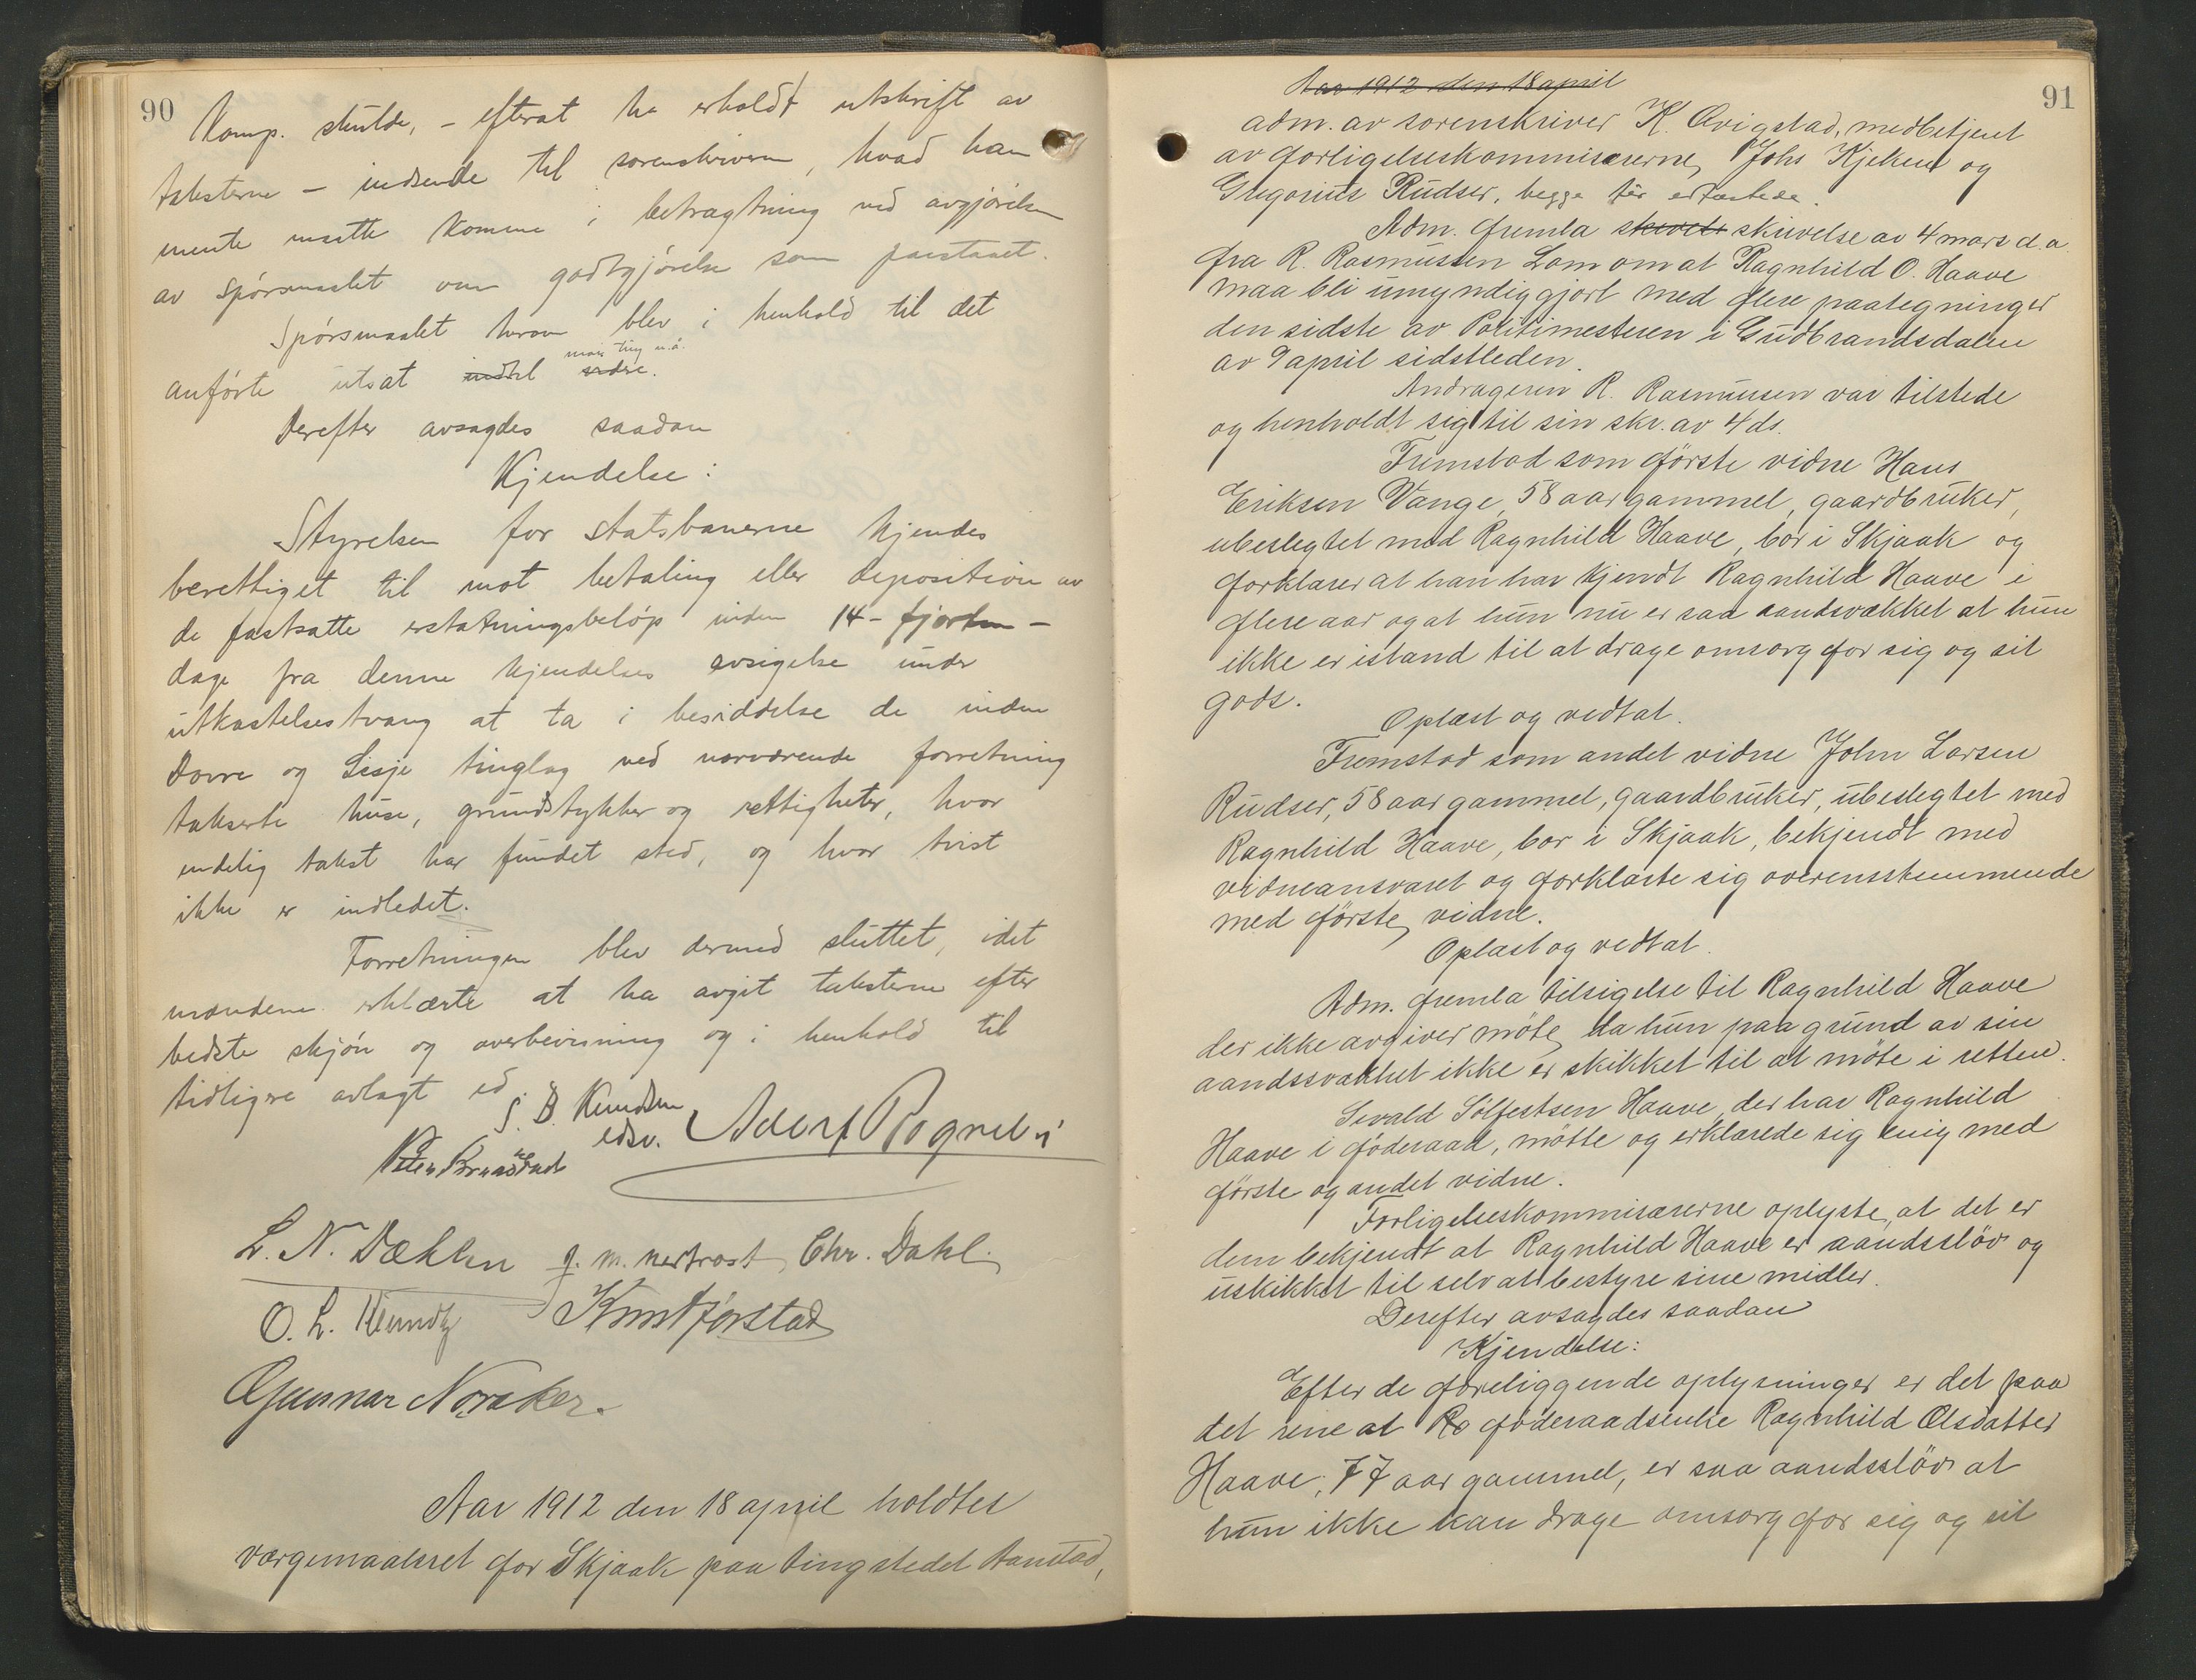 90
Komp. skulde, - efterat ha erholdt utskrift av
taksterne - indsende til sorenskriveren, hvad han
mente maatte komme i betragtning ved avgjörelsen
av spörsmaalet om godtgjörelse som paastaaet.
Spörsmaalet herom blev i henhold til det
anförte utsat indtil videre.
Derefter avsagdes saadan
Kjendelse:
Styrelsen for statsbanerne kjendes
berettiget til mot betaling eller deposition av
de fastsatte erstatningsbelöp inden 14 - fjorten -
dage fra denne kjendelses avsigelse under
utkastelsestvang at ta i besiddelse de inden
Dovre og Lesje tinglag ved nærværende forretning
takserte huse, grundstykker og rettigheter, hvor
endelig takst har fundet sted, og hvor tvist
ikke er indledet.
Forretningen blev dermed sluttet, idet
mændene erklærte at ha avgit taksterne efter
bedste skjön og overbevisning og i henhold til
tidligere avlagt ed.
S. B. Knudsen
edsv.
L. N. Dæhlen J. M. Chr. Dahl.
O. L.
Gunnar Noraker.
Aar 1912 den 18 april holdtes
værgemaalsret for Skjaak paa tingstedet Aanstad,
91
Aar 1912 den 18 april
adm. av sorenskriver K. Qvigstad, medbetjent
av forligelseskommisærerne Johs Kjeken og
Gregorius Rudser, begge för edfæstede.
Adm. fremla skrivelse av 4 mars d.a.
fra R. Rasmussen Lom om at Ragnhild O. Haave
maa bli umyndiggjort med flere paategninger
den sidste av Politimesteren i Gudbrandsdalen
av 9 april sidstleden.
Andrageren R. Rasmussen var tilstede
og henholdt sig til sin skr. av 4 ds.
Fremstod som förste vidne Hans
Eriksen Vange, 58 aar gammel, gaardbruker,
ubeslegtet med Ragnhild Haave, bor i Skjaak og
forklarer at han har kjendt Ragnhild Haave i
flere aar og at hun nu er saa aandsvækket at hun
ikke er istand til at drage omsorg for sig og sit
gods.
Oplæst og vedtat.
Fremstod som andet vidne John Larsen
Rudser, 58 aar gammel, gaardbruker, ubeslegtet med
Ragnhild Haave, bor i Skjaak, bekjendt med
vidneansvaret og forklarte sig overensstemmende
med förste vidne.
Oplæst og vedtat.
Adm. fremla tilsigelse til Ragnhild Haave
der ikke avgiver möte, da hun paa grund av sin
aandssvakhet ikke er skikket til at möte i retten.
Sevald Sölfestsen Haave, der har Ragnhild
Haave i föderaad, mötte og erklærede sig enig med
förste og andet vidne.
Forligelseskommisærerne oplyste, at det er
dem bekjendt at Ragnhild Haave er aandsslöv og
uskikket til selv at bestyre sine midler.
Derefter avsagdes saadan
Kjendelse:
Efter de foreliggende oplysninger er det paa
det rene at Ra föderaadsenke Ragnhild Olsdatter
Haave, 77 aar gammel, er saa aandsslöv at
hun ikke kan drage omsorg for sig og sit